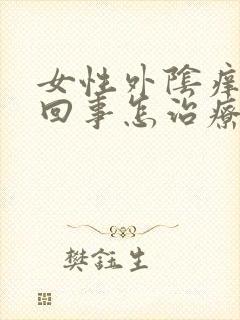 女性外陰癢
回事怎治療
樊鈺生